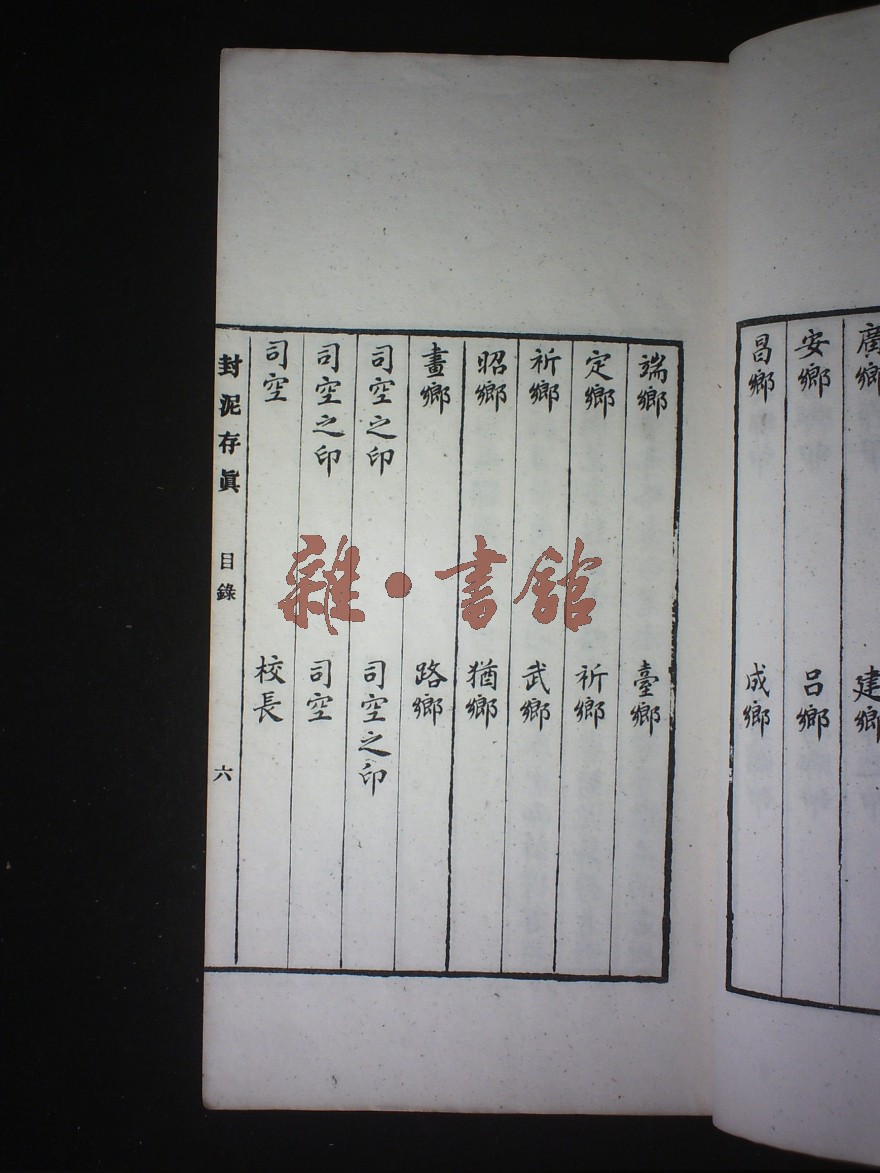 廣鄉　建鄉
安鄉　呂鄉
昌鄉　成鄉
端鄉　臺鄉
定鄉　祈鄉
祈鄉　武鄉
昭鄉　猶鄉
畫鄉　路鄉
司空之印　司空之印
司空之印　司空
司空　校長
封泥存眞　目錄　六
雜·書館